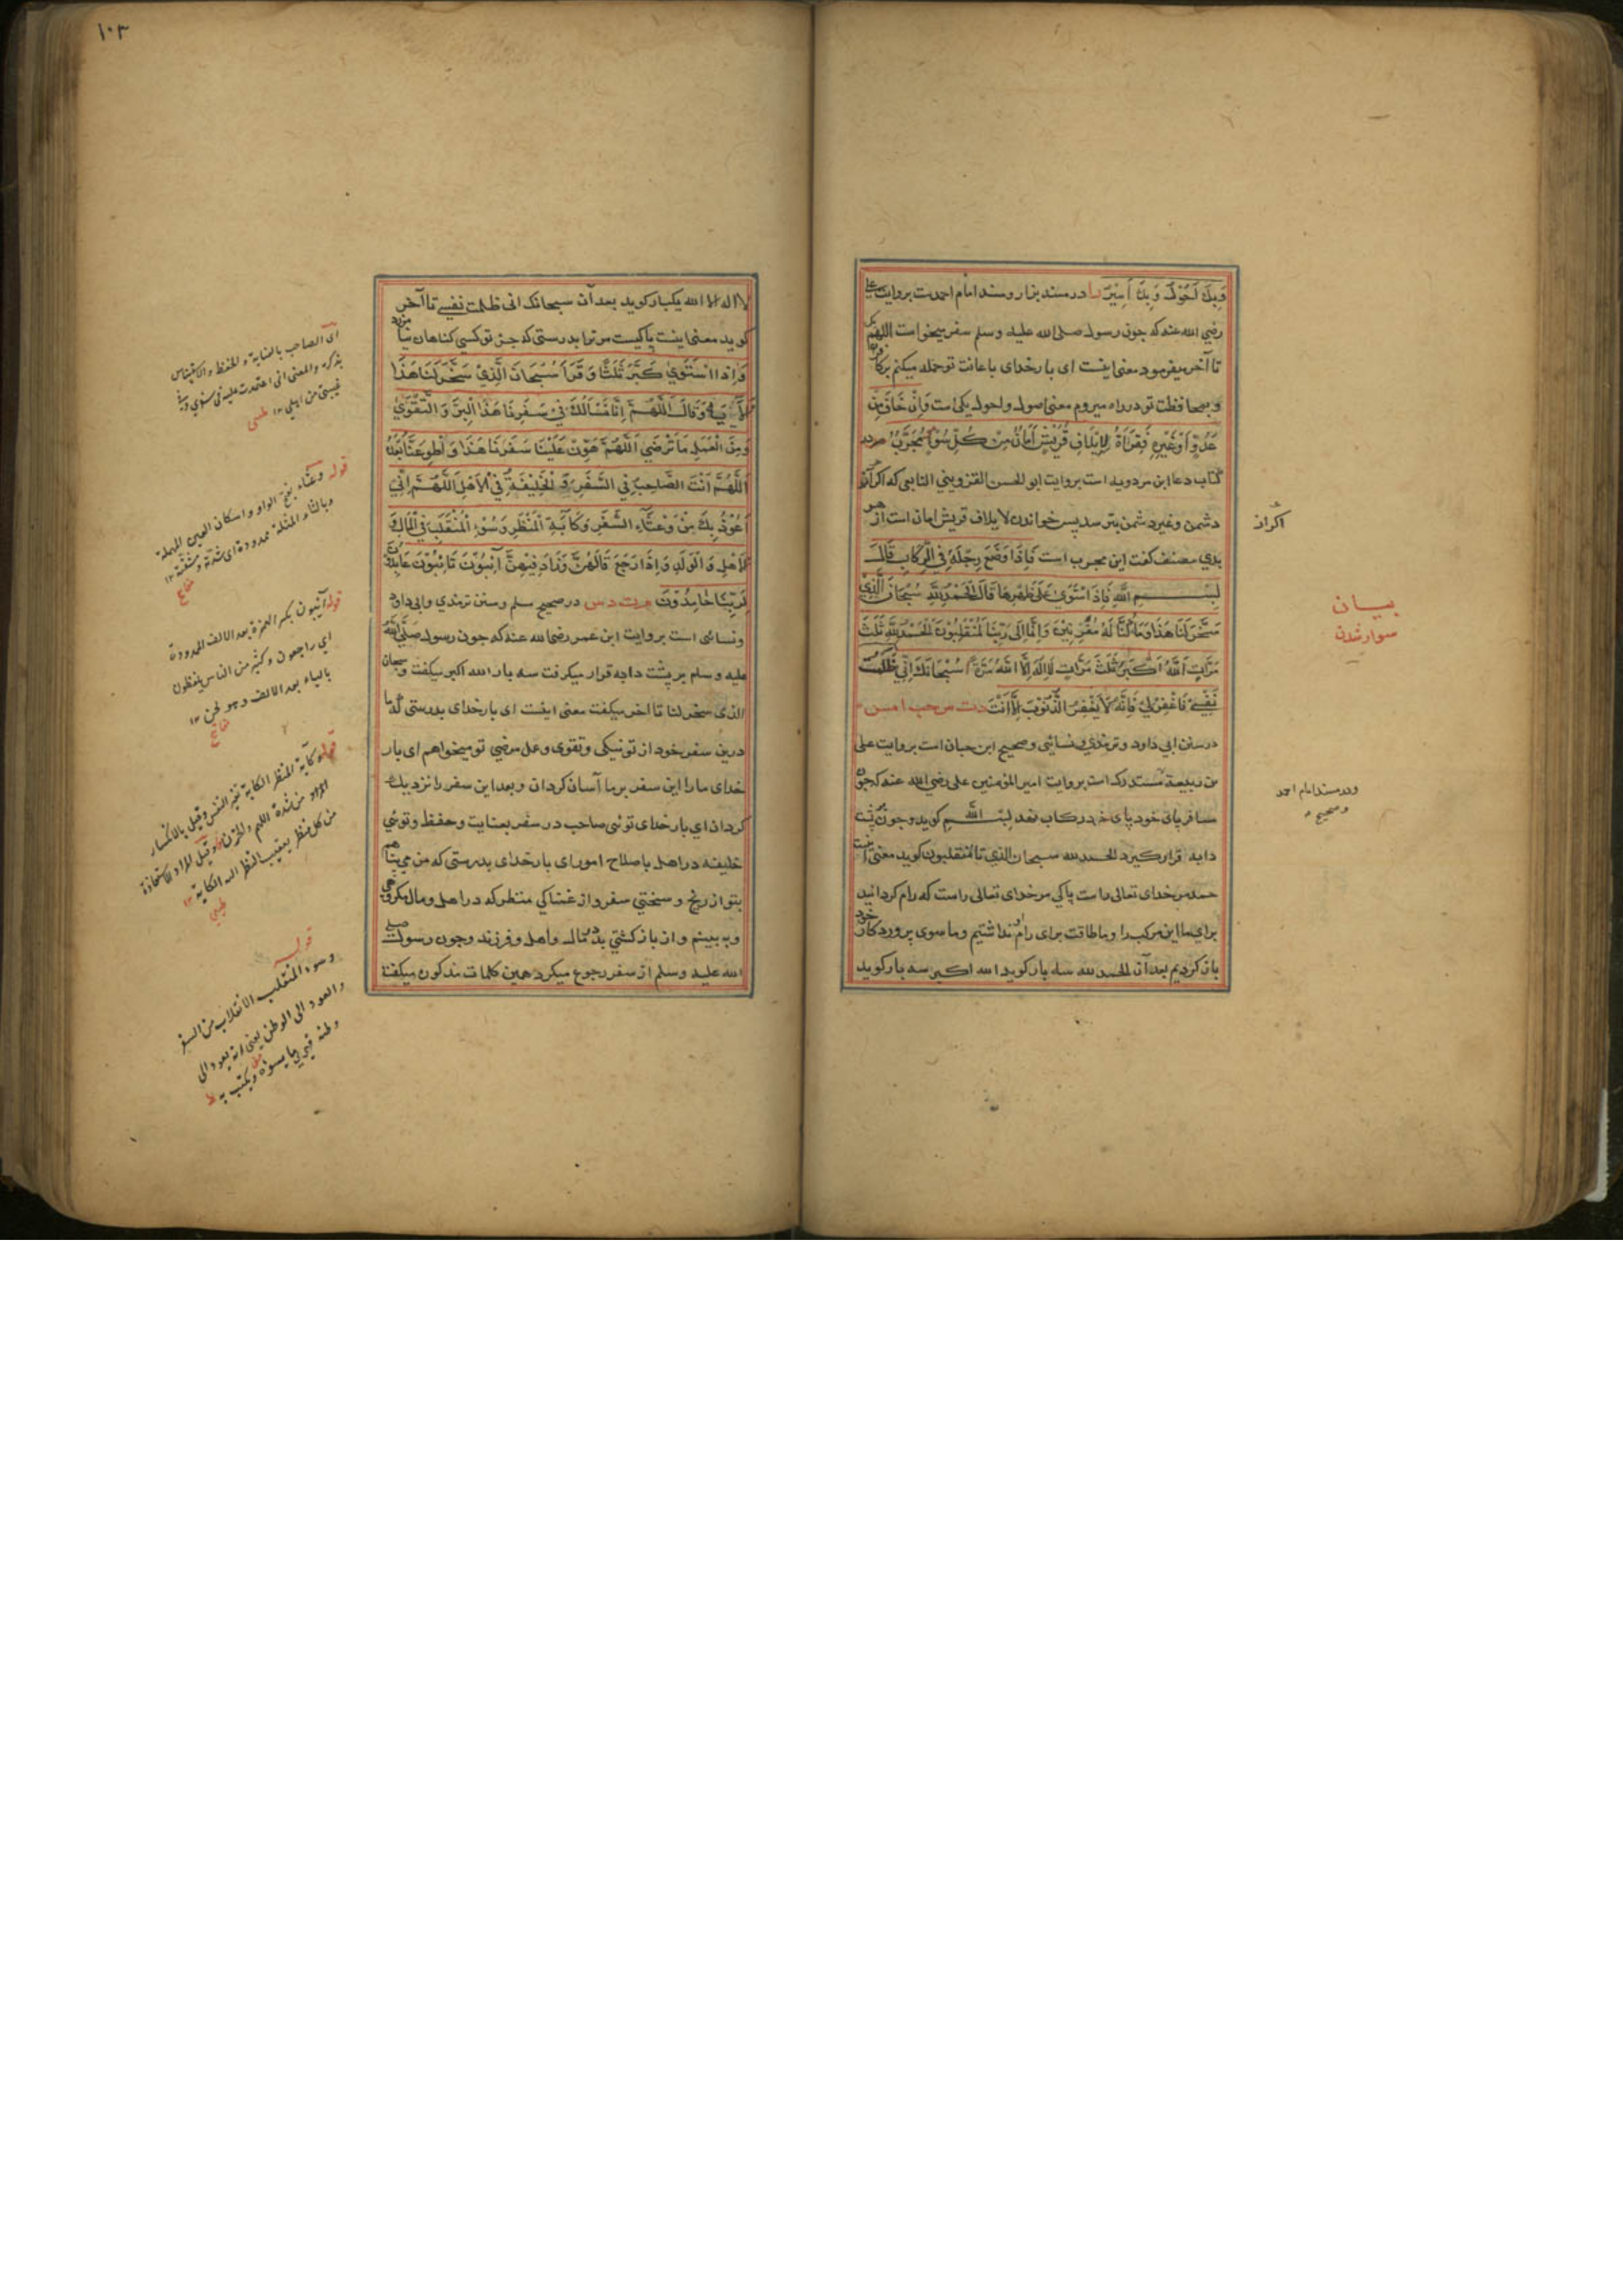 وَبِكَ اَحُوْلُ وَبِكَ اَسِيْرُ را در مسند بزار و مسند امام احمدست بروايت علي
رضي الله عنه كه چون رسول صلى الله عليه وسلم سفر ميخواست اللهم بك
تا آخر ميفرمود معنى اينست اى بار خداى باعانت تو حمله ميكنم بر كافران
و بمحافظت تو در راه ميروم معنى اصول و احول يكى است وَاِنْ خَافَ مِنْ
عَدُوٍّ اَوْ غَيْرِهِ فَقِرَاَةُ لِاِيْلَافِ قُرَيْشٍ اَمَانٌ مِنْ كُلِّ سُوْءٍ مُجَرَّبٌ
كتاب دعا ابن مردويه است بروايت ابو الحسن القزويني التابعى كه اكر از
دشمن وغير دشمن بترسد پس خواندن لايلاف قريش امان است از هر
بدي مصنف كفت اين مجرب است فَاِذَا وَضَعَ رِجْلَهُ فِي الرِّكَابِ قَالَ
بِسْمِ اللهِ فَاِذَا اسْتَوٰى عَلٰى ظَهْرِهَا قَالَ اَلْحَمْدُ لِلّٰهِ سُبْحَانَ الَّذِيْ
سَخَّرَ لَنَا هٰذَا وَمَا كُنَّا لَهُ مُقْرِنِيْنَ وَاِنَّا اِلٰى رَبِّنَا لَمُنْقَلِبُوْنَ اَلْحَمْدُ لِلّٰهِ ثَلٰثَ
مَرَّاتٍ اَللهُ اَكْبَرُ ثَلٰثَ مَرَّاتٍ لَا اِلٰهَ اِلَّا اللهُ مَرَّةً سُبْحَانَكَ اِنِّيْ ظَلَمْتُ
نَفْسِيْ فَاغْفِرْ لِيْ فَاِنَّهُ لَا يَغْفِرُ الذُّنُوْبَ اِلَّا اَنْتَ دت س حب ا مس
در سنن ابي داود و ترمذي و نسائي و صحيح ابن حبان است بروايت على
بن ربيعة مستدرك است بروايت امير المؤمنين على رضي الله عنه كه چون
مسافر پاى خود در ركاب نهد بسم الله كويد و چون بر پشت
دابه قرار كيرد الحمد لله سبحان الذي تا لمنقلبون كويد معنى اينست
حمد مر خداى تعالى راست پاكي مر خداى تعالى راست كه رام كردانيد
براى ما اين مركب را و ما طاقت براى رام او نداشتيم و ما سوى پروردكار خود
باز كرديم بعد آن الحمد لله سه بار كويد الله اكبر سه بار كويد
اكر از
بيان
سوار شدن
ودر مسند امام احمد
وصحيح
١٠٣
لا اله الا الله يكبار كويد بعد آن سبحانك انى ظلمت نفسي تا آخر
كويد معنى اينست پاكيست مر ترا بدرستى كه جز تو كسي كناهان نيامرزد
وَاِذَا اسْتَوٰى كَبَّرَ ثَلٰثًا وَقَرَاَ سُبْحَانَ الَّذِيْ سَخَّرَ لَنَا هٰذَا
اَلْآيَة وَقَالَ اَللّٰهُمَّ اِنَّا نَسْاَلُكَ فِيْ سَفَرِنَا هٰذَا الْبِرَّ وَ التَّقْوٰى
وَمِنَ الْعَمَلِ مَا تَرْضٰى اَللّٰهُمَّ هَوِّنْ عَلَيْنَا سَفَرَنَا هٰذَا وَ اطْوِ عَنَّا بُعْدَهُ
اَللّٰهُمَّ اَنْتَ الصَّاحِبُ فِي السَّفَرِ وَ الْخَلِيْفَةُ فِي الْاَهْلِ اَللّٰهُمَّ اِنِّيْ
اَعُوْذُ بِكَ مِنْ وَعْثَآءِ السَّفَرِ وَكَآبَةِ الْمَنْظَرِ وَسُوْءِ الْمُنْقَلَبِ فِي الْمَالِ وَ
الْاَهْلِ وَ الْوَلَدِ وَ اِذَا رَجَعَ قَالَهُنَّ وَزَادَ فِيْهِنَّ آئِبُوْنَ تَائِبُوْنَ عَابِدُوْنَ
لِرَبِّنَا حَامِدُوْنَ م ت د س در صحيح مسلم و سنن ترمذي و ابى داود
و نسائى است بروايت ابن عمر رضى الله عنه كه چون رسول صلى الله
عليه وسلم بر پشت دابه قرار ميكرفت سه بار الله اكبر ميكفت و سبحان
الذى سخر لنا تا آخر ميكفت معنى اينست اى بار خداى بدرستى كه ما
درين سفر خود از تو نيكى و تقوى و عمل مرضي تو ميخواهم اى بار
خداى ما را اين سفر بر ما آسان كردان و بعد اين سفر را نزديك
كردان اي بار خداى توئى صاحب در سفر بعنايت و حفظ و توئى
خليفه در اهل باصلاح امور اى بار خداى بدرستى كه من مي پناهم
بتو از رنج و سختي سفر و از غمناكي منظر كه در اهل و مال مكروهى
به بينم و از باز كشتي بد در مال و اهل و فرزند و چون رسول صلى
الله عليه وسلم از سفر رجوع ميكرد همين كلمات مذكور ميكفت
اى الصاحب بالعناية و الحفظ والاستيناس
بذكره والمعنى انى اعتمدت عليه فى سفري وفى
غيبتى من اهلي ١٢ طيبى
قوله وعثاء بفتح الواو واسكان العين المهملة
وبالثاء المثلثة ممدودة اى شدته ومشقته ١٢
قوله آئبون بكسر الهمزة بعد الالف الممدودة
اي راجعون وكثير من الناس يلفظون
بالياء بعد الالف وهو لحن ١٢
قوله وكآبة المنظر الكآبة تغير النفس وقيل بالانكسار
من شدة الهم والحزن وقيل المراد الاستعاذة
من كل منظر يعقب النظر اليه الكآبة ١٢
طيبي
قوله
وسوء المنقلب الانقلاب من السفر
والعود الى الوطن يعنى انه يعود الى
وطنه فيرى ما يسوءه